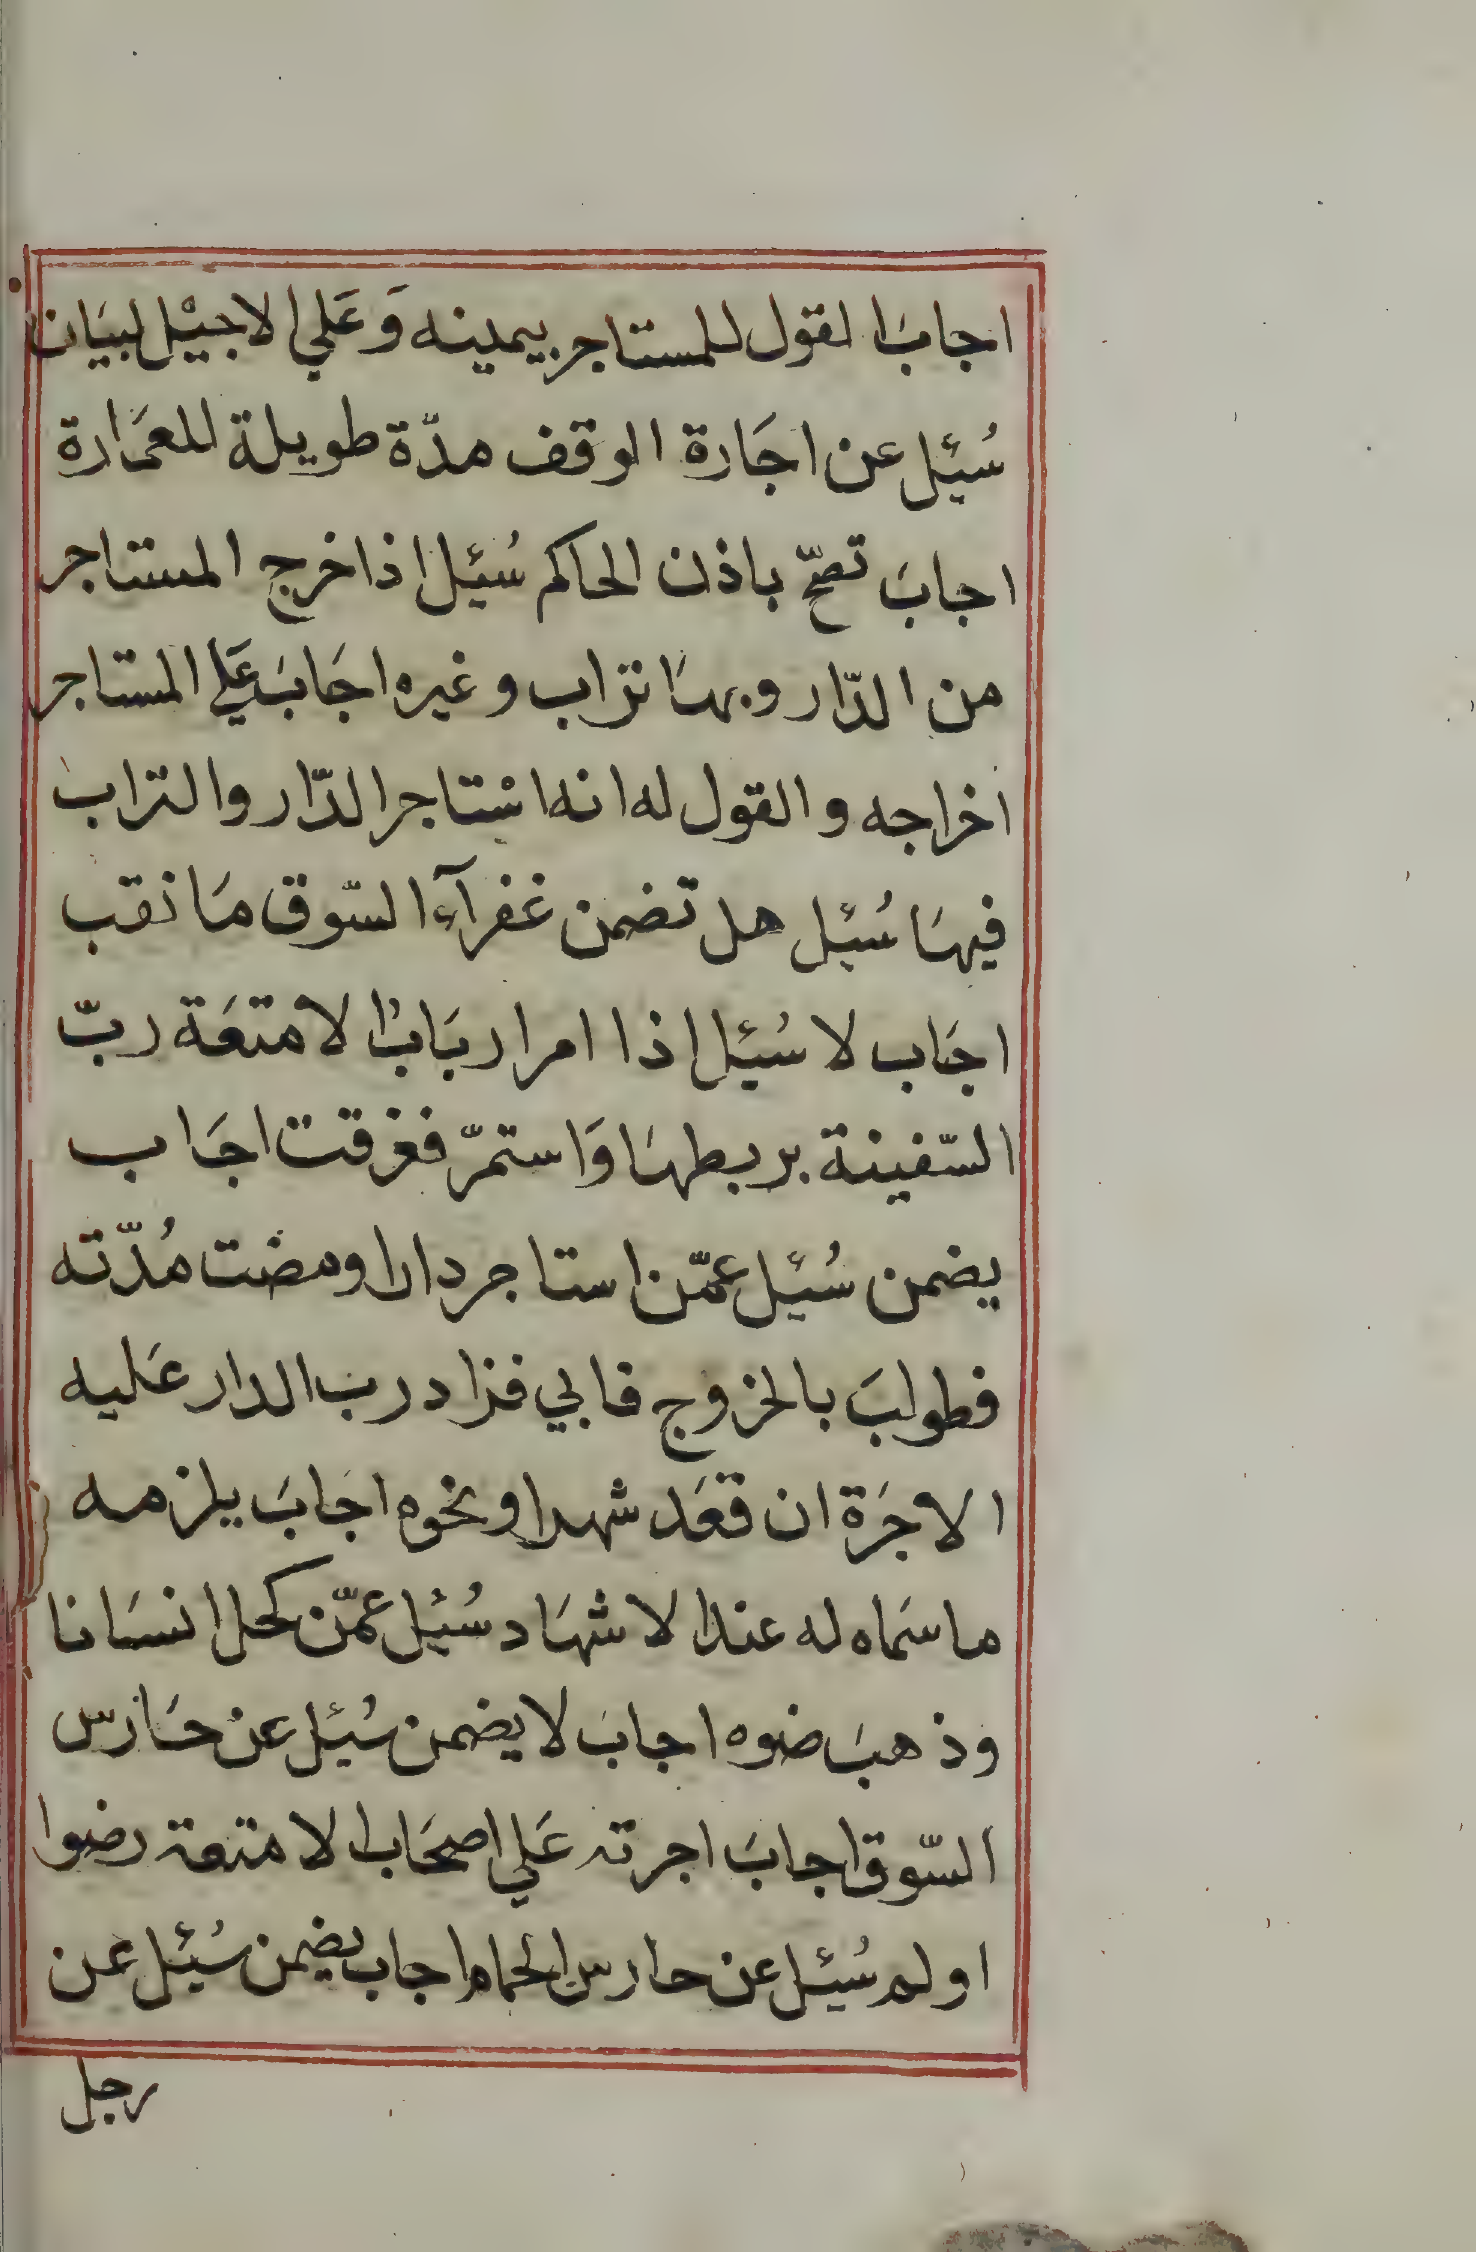 اجابَ القول للمستاجر بيمينه وَعَلي الاجيْل لبيَان
سُئِل عن اجَارة الوقف مدّة طويلة للعمَارة
اجابَ تصحّ باذن الحاكم سُئِل اذا خرج المستاجر
من الدّار وبهَا تراب وغيره اجَابَ عَلي المستاجر
اخراجه والقول له انه اسْتاجر الدّار والتراب
فيهَا سُئِل هل تضمن غفرآء السّوق مَا نقب
اجَاب لا سُئِل اذا امر اربَابُ الامتعَة ربّ
السّفينة بربطهَا وَاستمرّ فغرقت اجَاب
يضمن سُئِل عمّن استاجر دارا ومضت مُدّته
فطولبَ بالخروج فابي فزاد رب الدار عَليه
الاجرَة ان قعَد شهرا ونحوه اجَابَ يلزمه
ما سَماه له عند الاشهَاد سُئِل عمّن كحل انسَانا
وذهبَ ضوه اجابَ لا يضمن سُئِل عن حَارس
السّوق اجابَ اجرته عَلي اصحَاب الامتعة رضوا
اولم سُئِل عن حارس الحمام اجاب يضمن سُئِل عن
رجل